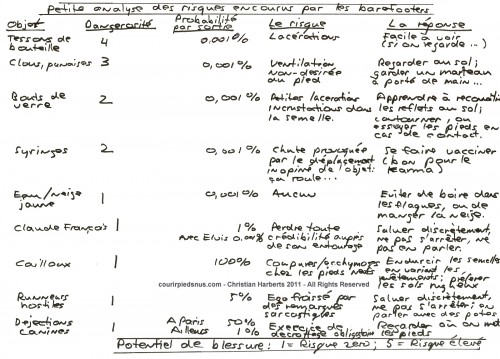 Petite analyse des risques encourus par les barefooters
Objet Dangerosité Probabilité par sortie Le risque La réponse
Tessons de bouteille 4 0,001% Lacérations Facile à voir (si on regarde...)
Clous, punaises 3 0,001% Ventilation non-désirée du pied Regarder au sol; garder un marteau à porté de main...
Bouts de verre 2 0,001% Petites lacérations Incrustations dans la semelle. Apprendre à reconnaître les reflets au sol; contourner, ou essuyer les pieds en cas de contact.
Syringes 2 0,001% Chute provoquée par le déplacement inopiné de l'objet: ça roule... Se faire vacciner (bon pour le karma)
Eau/Neige jaune 1 0,001% Aucun Eviter de boire dans les flaques, ou de manger la neige.
Claude François 1 1% Avec Elvis 0,001% Perdre toute crédibilité auprès de son entourage Saluer discrètement, ne pas s'arrêter, ne pas en parler.
Cailloux 1 100% Coupures/ecchymoses chez les pieds Endurcir les semelles en variant les revêtements; préférer les sols rugueux
courirpiedsnus.com - Christian Harberts 2011 - All Rights Reserved
Runneurs hostiles 1 5% Ego froissé par des remarques sarcastiques Saluer discrètement, ne pas s'arrêter; en parler avec des potes.
Déjections Canines 1 A Paris 50% Ailleurs 1% Exercice de décrottage obligatoire Regarder où on met les pieds
Potentiel de blessure: 1 = Risque zero; 5 = Risque élevé